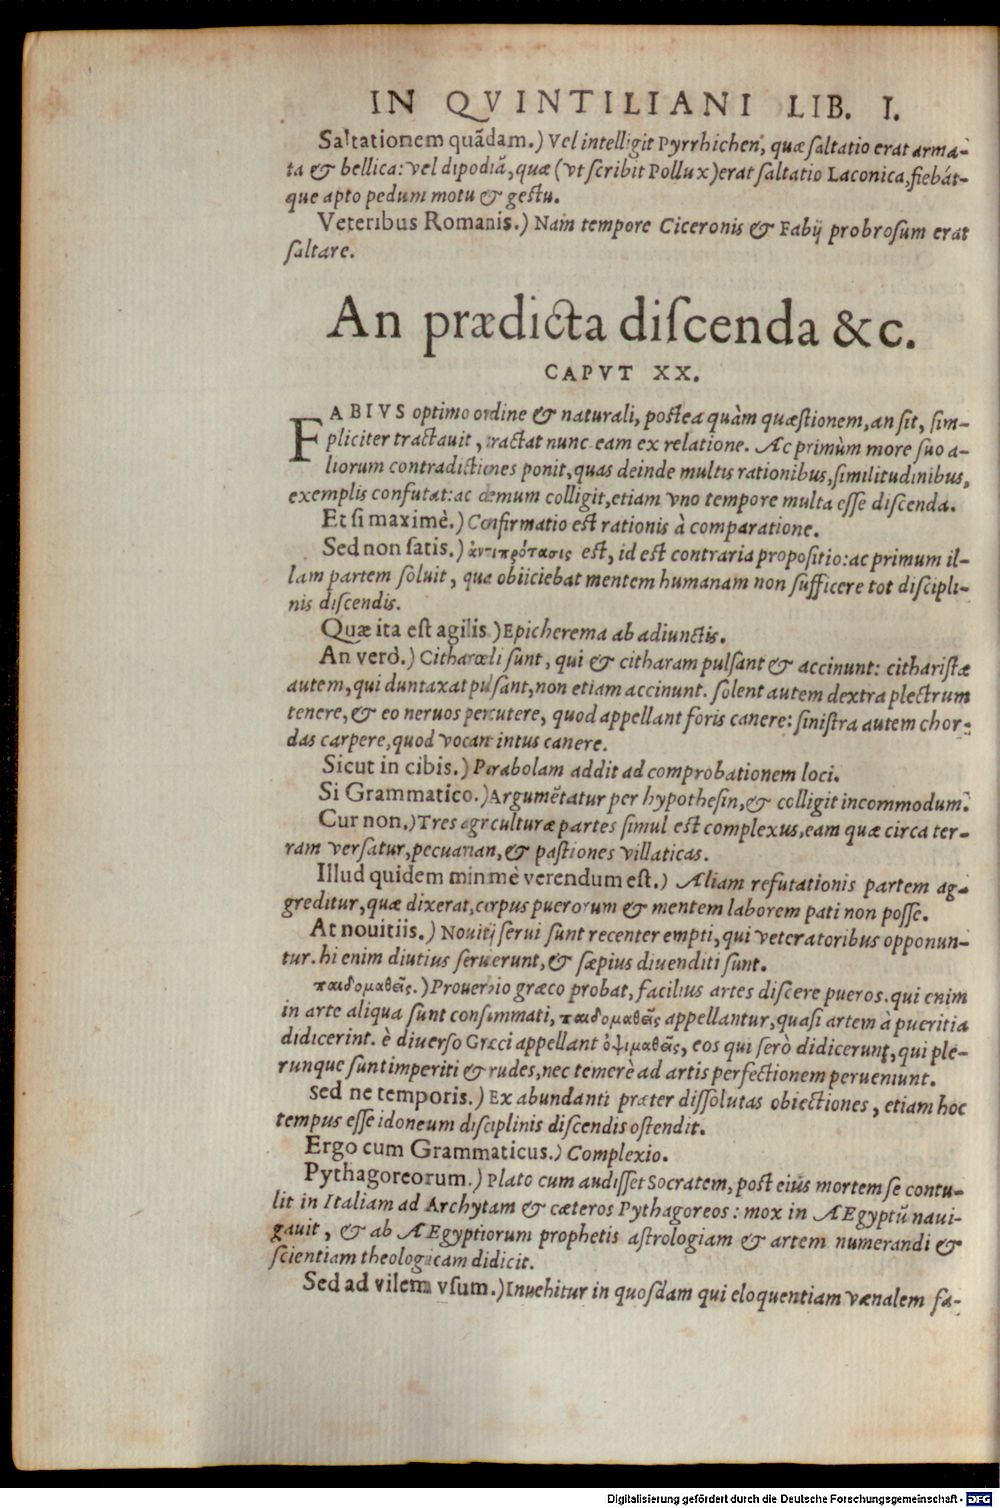 IN QVINTILIANI LIB. I.
Saltationem quãdam.) Vel intelligit Pyrrhichen, quæ ſaltatio erat arma-
ta & bellica: vel dipodiã, quæ (vt ſcribit Pollux) erat ſaltatio Laconica, fiebát-
que apto pedum motu & geſtu.
Veteribus Romanis.) Nam tempore Ciceronis & Fabij probroſum erat
ſaltare.
An prædicta diſcenda &c.
CAPVT XX.
FABIVS optimo ordine & naturali, poſtea quàm quæſtionem, an ſit, ſim-
pliciter tractauit, tractat nunc eam ex relatione. Ac primùm more ſuo a-
liorum contradictiones ponit, quas deinde multis rationibus, ſimilitudinibus,
exemplis confutat: ac demum colligit, etiam vno tempore multa eſſe diſcenda.
Et ſi maximè.) Confirmatio eſt rationis à comparatione.
Sed non ſatis.) ἀντιπρότασις eſt, id eſt contraria propoſitio: ac primum il-
lam partem ſoluit, quæ obiiciebat mentem humanam non ſufficere tot diſcipli-
nis diſcendis.
Quæ ita eſt agilis.) Epicherema ab adiunctis.
An verò.) Citharœdi ſunt, qui & citharam pulſant & accinunt: cithariſtæ
autem, qui duntaxat pulſant, non etiam accinunt. ſolent autem dextra plectrum
tenere, & eo neruos percutere, quod appellant foris canere: ſiniſtra autem chor-
das carpere, quod vocant intus canere.
Sicut in cibis.) Parabolam addit ad comprobationem loci.
Si Grammatico.) Argumẽtatur per hypotheſin, & colligit incommodum.
Cur non.) Tres agrculturæ partes ſimul eſt complexus, eam quæ circa ter-
ram verſatur, pecuarian, & paſtiones villaticas.
Illud quidem minimè verendum eſt.) Aliam refutationis partem ag-
greditur, quæ dixerat, corpus puerorum & mentem laborem pati non poſſe.
At nouitiis.) Nouitij ſerui ſunt recenter empti, qui veteratoribus opponun-
tur. hi enim diutius ſeruerunt, & ſæpius diuenditi ſunt.
παιδομαθεῖς.) Prouerbio græco probat, facilius artes diſcere pueros. qui enim
in arte aliqua ſunt conſummati, παιδομαθεῖς appellantur, quaſi artem à pueritia
didicerint. è diuerſo Græci appellant ὀψιμαθεῖς, eos qui ſerò didicerunt, qui ple-
runque ſunt imperiti & rudes, nec temerè ad artis perfectionem perueniunt.
Sed ne temporis.) Ex abundanti præter diſſolutas obiectiones, etiam hoc
tempus eſſe idoneum diſciplinis diſcendis oſtendit.
Ergo cum Grammaticus.) Complexio.
Pythagoreorum.) Plato cum audiſſet Socratem, poſt eius mortem ſe contu-
lit in Italiam ad Archytam & cæteros Pythagoreos: mox in AEgyptũ naui-
gauit, & ab AEgyptiorum prophetis aſtrologiam & artem numerandi &
ſcientiam theologicam didicit.
Sed ad vilem vſum.) Inuehitur in quoſdam qui eloquentiam vænalem fa-
Digitalisierung gefördert durch die Deutsche Forschungsgemeinschaft - DFG